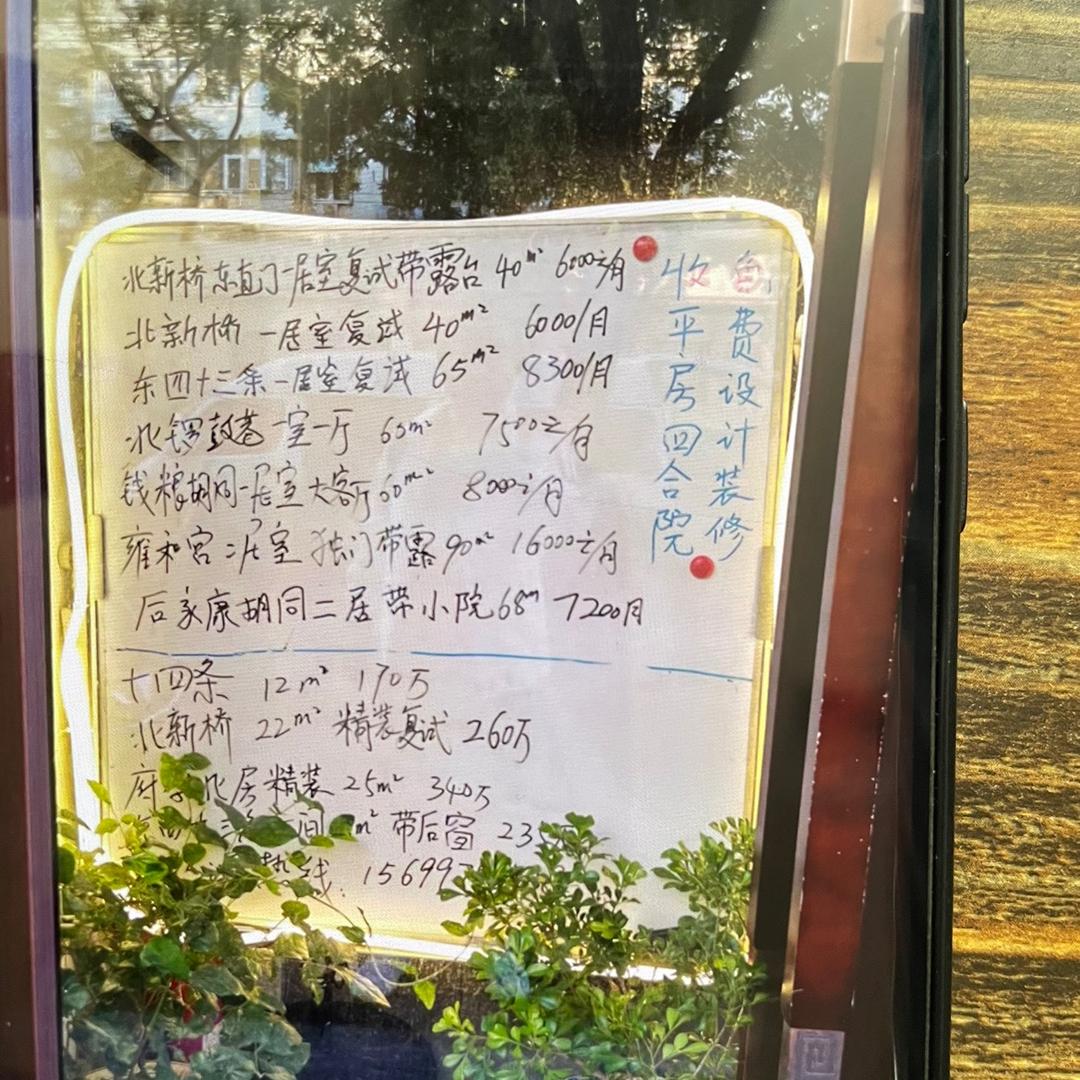 北新桥东直门一居室复试带露台 40m² 6000元/月
北新桥 一居室复试 40m² 6000/月
东四十三条一居室复试 65m² 8300/月
北锣鼓巷 一室一厅 60m² 7500元/月
钱粮胡同一居室大客厅 60m² 8000元/月
雍和宫二居室 独门带露 90m² 16000元/月
后永康胡同二居带小院 68m 7200月
十四条 12m² 170万
北新桥 22m² 精装复试 260万
府 北房精装 25m² 340万
间 m² 带后窗 23
热线: 15699
收平房四合院
免费设计装修